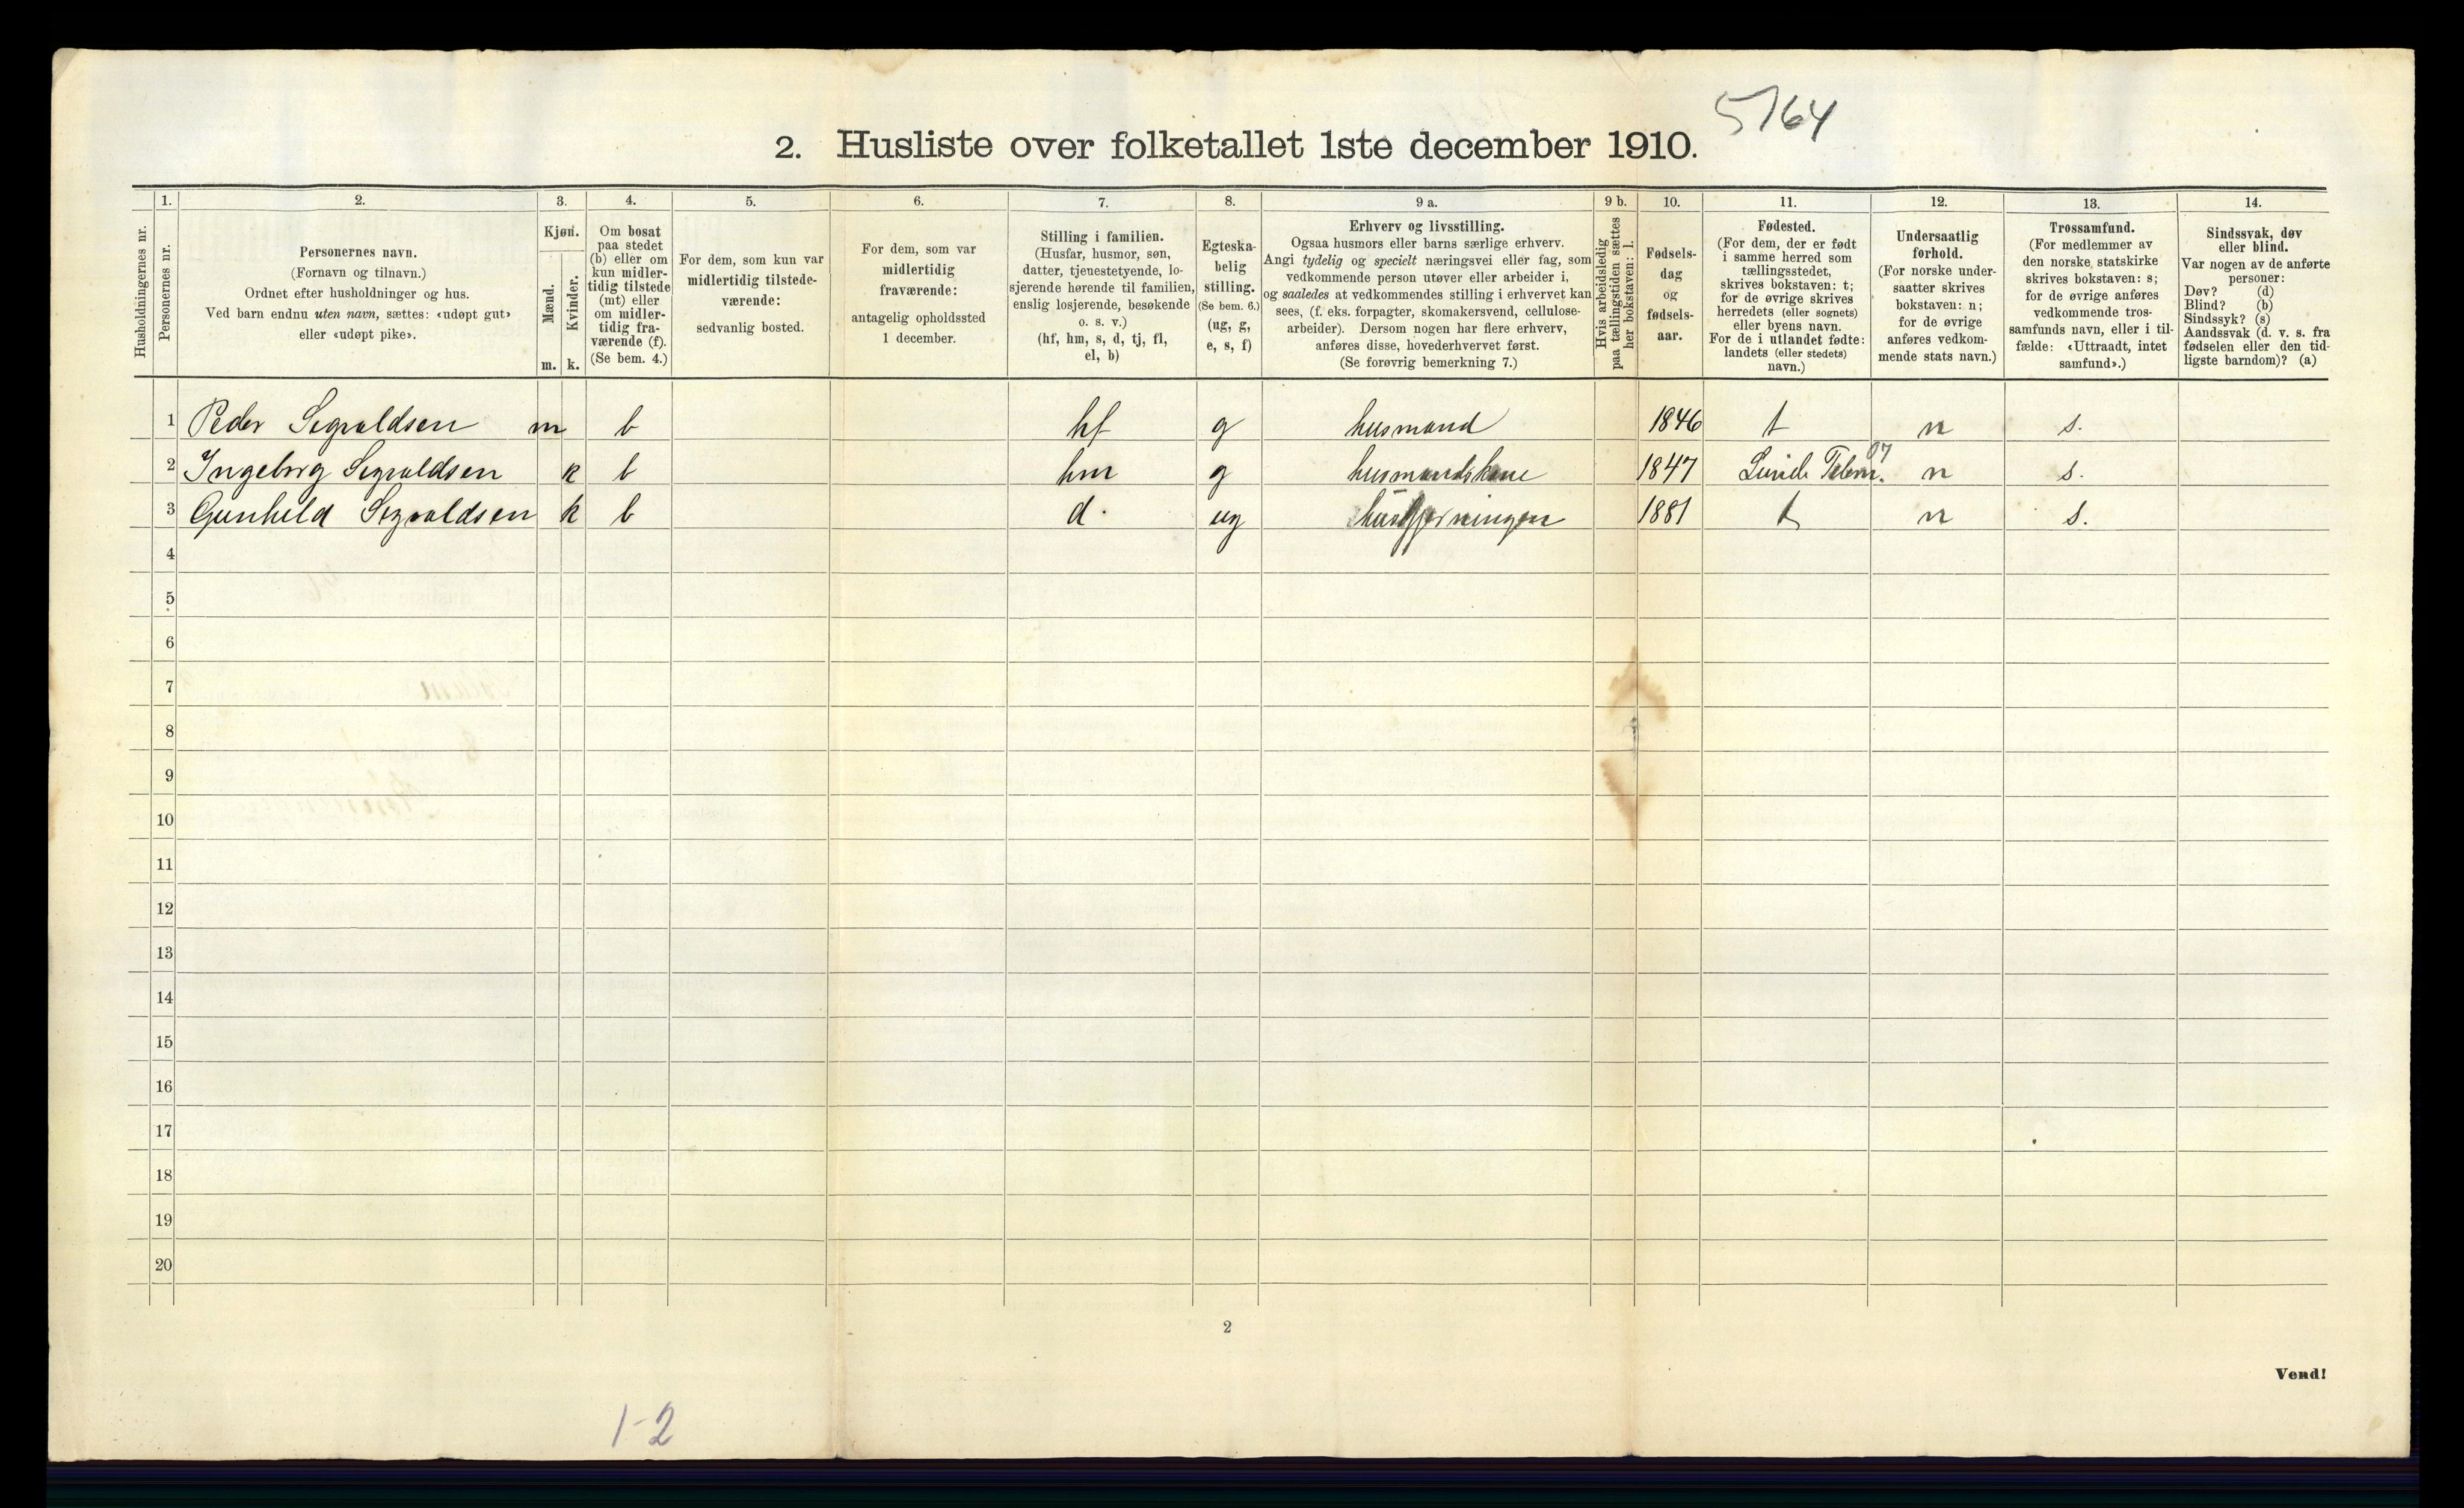 5764
2. Husliste over folketallet 1ste december 1910.
1. 2. 3. 4. 5. 6. 7. 8. 9 a. 9 b. 10. 11. 12. 13. 14.
Husholdningernes nr.
Personernes nr.
Personernes navn.
(Fornavn og tilnavn.)
Ordnet efter husholdninger og hus.
Ved barn endnu uten navn, sættes: «udøpt gut»
eller «udøpt pike».
Kjøn.
Mænd.
Kvinder.
m. k.
Om bosat
paa stedet
(b) eller om
kun midler-
tidig tilstede
(mt) eller
om midler-
tidig fra-
værende (f).
(Se bem. 4.)
For dem, som kun var
midlertidig tilstede-
værende:
sedvanlig bosted.
For dem, som var
midlertidig
fraværende:
antagelig opholdssted
1 december.
Stilling i familien.
(Husfar, husmor, søn,
datter, tjenestetyende, lo-
sjerende hørende til familien,
enslig losjerende, besøkende
o. s. v.)
(hf, hm, s, d, tj, fl,
el, b)
Egteska-
belig
stilling.
(Se bem. 6.)
(ug, g,
e, s, f)
Erhverv og livsstilling.
Ogsaa husmors eller barns særlige erhverv.
Angi tydelig og specielt næringsvei eller fag, som
vedkommende person utøver eller arbeider i,
og saaledes at vedkommendes stilling i erhvervet kan
sees, (f. eks. forpagter, skomakersvend, cellulose-
arbeider). Dersom nogen har flere erhverv,
anføres disse, hovederhvervet først.
(Se forøvrig bemerkning 7.)
Hvis arbeidsledig
paa tællingstiden sættes
her bokstaven: l.
Fødsels-
dag
og
fødsels-
aar.
Fødested.
(For dem, der er født
i samme herred som
tællingsstedet,
skrives bokstaven: t;
for de øvrige skrives
herredets (eller sognets)
eller byens navn.
For de i utlandet fødte:
landets (eller stedets)
navn.)
Undersaatlig
forhold.
(For norske under-
saatter skrives
bokstaven: n;
for de øvrige
anføres vedkom-
mende stats navn.)
Trossamfund.
(For medlemmer av
den norske statskirke
skrives bokstaven: s;
for de øvrige anføres
vedkommende tros-
samfunds navn, eller i til-
fælde: «Uttraadt, intet
samfund».)
Sindssvak, døv
eller blind.
Var nogen av de anførte
personer:
Døv? (d)
Blind? (b)
Sindssyk? (s)
Aandssvak (d. v. s. fra
fødselen eller den tid-
ligste barndom)? (a)
1 Peder Segvaldsen m b hf g husmand 1846 t n s.
2 Ingeborg Segvaldsen k b hm g husmandskone 1847 Lunde Telem. 07 n s.
3 Gunhild Segvaldsen k b d. ug husgjerningen 1881 t n s.
4
5
6
7
8
9
10
11
12
13
14
15
16
17
18
19
20
2
Vend!
1-2